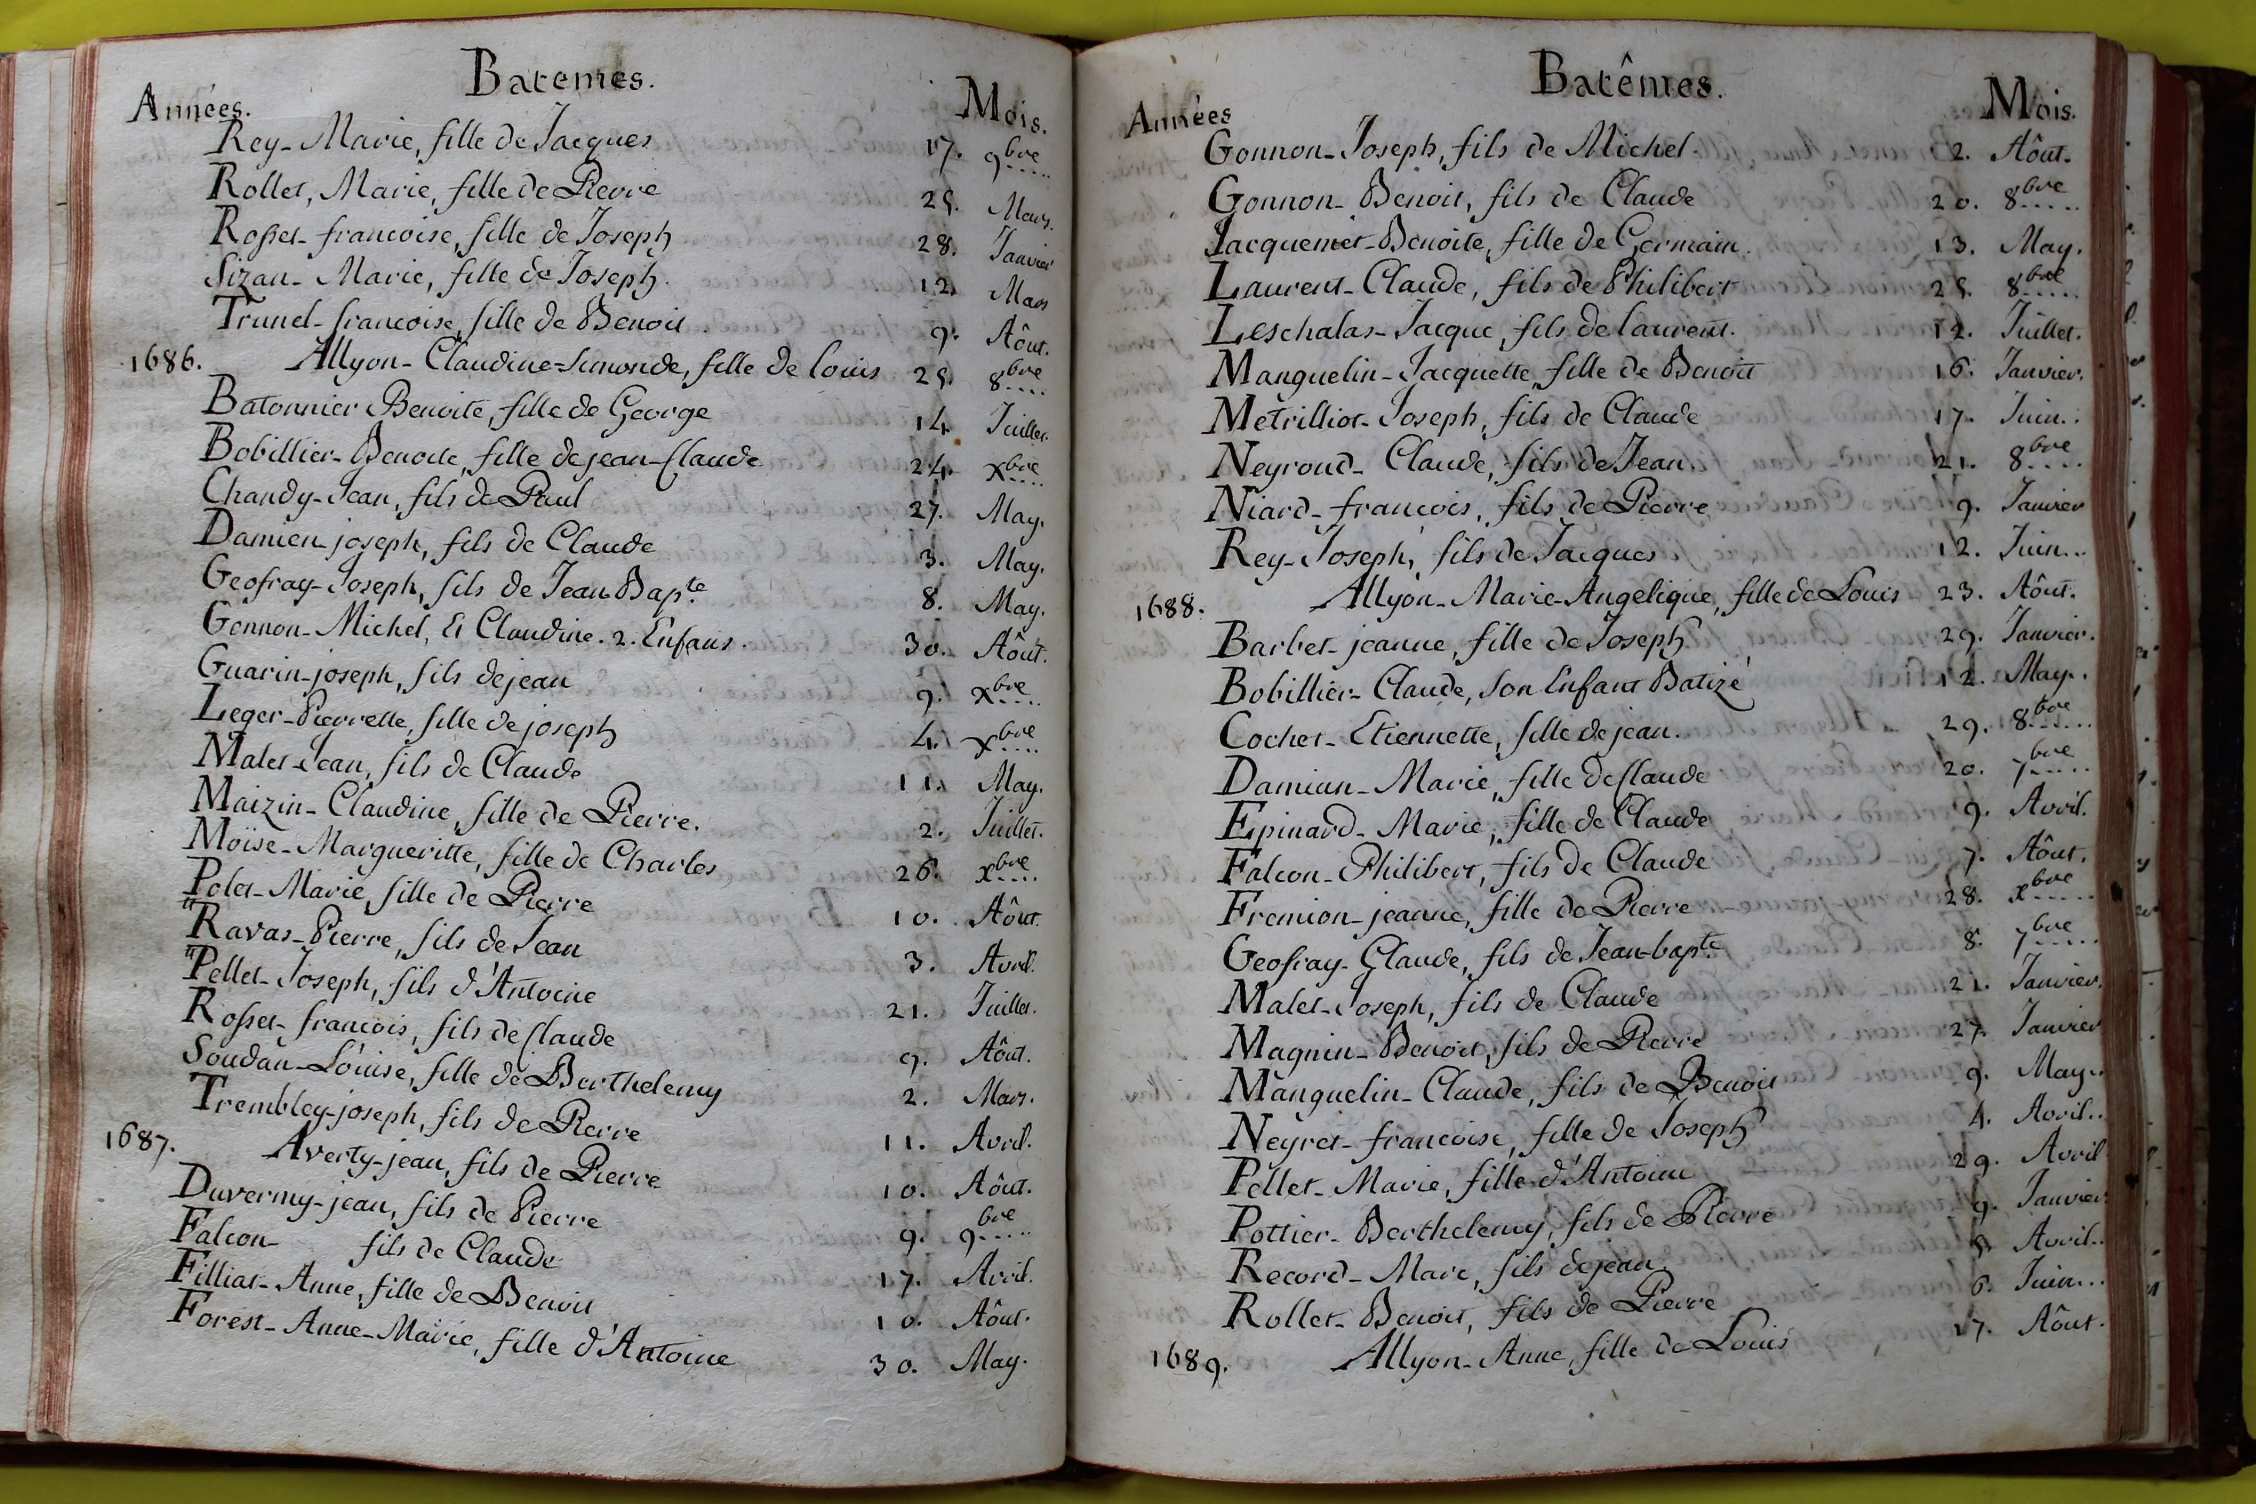 Batemes.
Années. Mois.
Rey- Marie, fille de Jacques 17. 9bre
Rollet, Marie, fille de Pierre 25. Mars.
Rosset- francoise, fille de Joseph 28. Janvier
Sizan- Marie, fille de Joseph. 12. Mars
Trunel- francoise, fille de Benoit. 9. Aôut.
1686. Allyon- Claudine-Simonde, fille de louis 25. 8bre
Batonnier Benoite, fille de George 14. Juillet.
Bobillier- Benoite, fille de jean-Claude 24. xbre
Chandy- Jean, fils de Paul 27. May.
Damien joseph, fils de Claude 3. May.
Geofray- Joseph, fils de Jean Bapte. 8. May.
Gonnon- Michel, Et Claudine. 2. Enfans. 30. Aôut.
Guarin-joseph, fils de jean 9. xbre
Leger-Pierrette, fille de joseph 4. xbre
Malet-Jean, fils de Claude 11. May.
Maizin- Claudine, fille de Pierre. 2. Juillet.
Moïse- Margueritte, fille de Charles 26. xbre
Polet- Marie, fille de Pierre 10. Aôut.
"Ravat- Pierre, fils de Jean 3. Avril.
"Pellet- Joseph, fils d'Antoine 21. Juillet.
Rosset- francois, fils de Claude 9. Aôut.
Soudan- Louise, fille de Berthelemy 2. Mars.
Trembley-joseph, fils de Pierre 11. Avril.
1687. Averty-jean, fils de Pierre 10. Aôut.
Duvermy-jean, fils de Pierre 9. 9bre
Falcon- fils de Claude 17. Avril.
Filliat- Anne, fille de Benoit 10. Aôut.
Forest- Anne-Marie, fille d'Antoine 30. May.
Batêmes.
Années Mois.
Gonnon- Joseph, fils de Michel. 2. Aôut.
Gonnon- Benoit, fils de Claude 20. 8bre
Jacquemet-Benoite, fille de Germain. 13. May.
Laurent- Claude, fils de Philibert 25. 8bre
Leschalas- Jacque, fils de laurent. 12. Juillet.
Manguelin- Jacquette, fille de Benoit 16. Janvier.
Metrilliot- Joseph, fils de Claude 17. Juin.
Neyroud- Claude, fils de Jean. 21. 8bre
Niard- francois, fils de Pierre 9. Janvier
Rey- Joseph, fils de Jacques 12. Juin..
1688. Allyon- Marie-Angelique, fille de Louis 23. Aôut.
Barbet- jeanne, fille de Joseph 29. Janvier.
Bobillier- Claude, Son Enfant Batizé 12. May.
Cochet- Etiennette, fille de jean. 29. 8bre
Damian- Marie, fille de Claude 20. 7bre
Epinard- Marie, fille de Claude 9. Avril.
Falcon- Philibert, fils de Claude 7. Aôut.
Fremion- jeanne, fille de Pierre 28. xbre
Geofray- Claude, fils de Jean-bapte. 8. 7bre
Malet- Joseph, fils de Claude 21. Janvier.
Magnin- Benoit, fils de Pierre 27. Janvier
Manguelin- Claude, fils de Benoit 9. May..
Neyret- francoise, fille de Joseph 4. Avril..
Pellet- Marie, fille d'Antoine 29. Avril
Pottier- Berthelemy, fils de Pierre 9. Janvier
Record- Marc, fils de jean. 8. Avril..
Rollet- Benoit, fils de Pierre 6. Juin...
1689. Allyon- Anne, fille de Louis 17. Aôut.